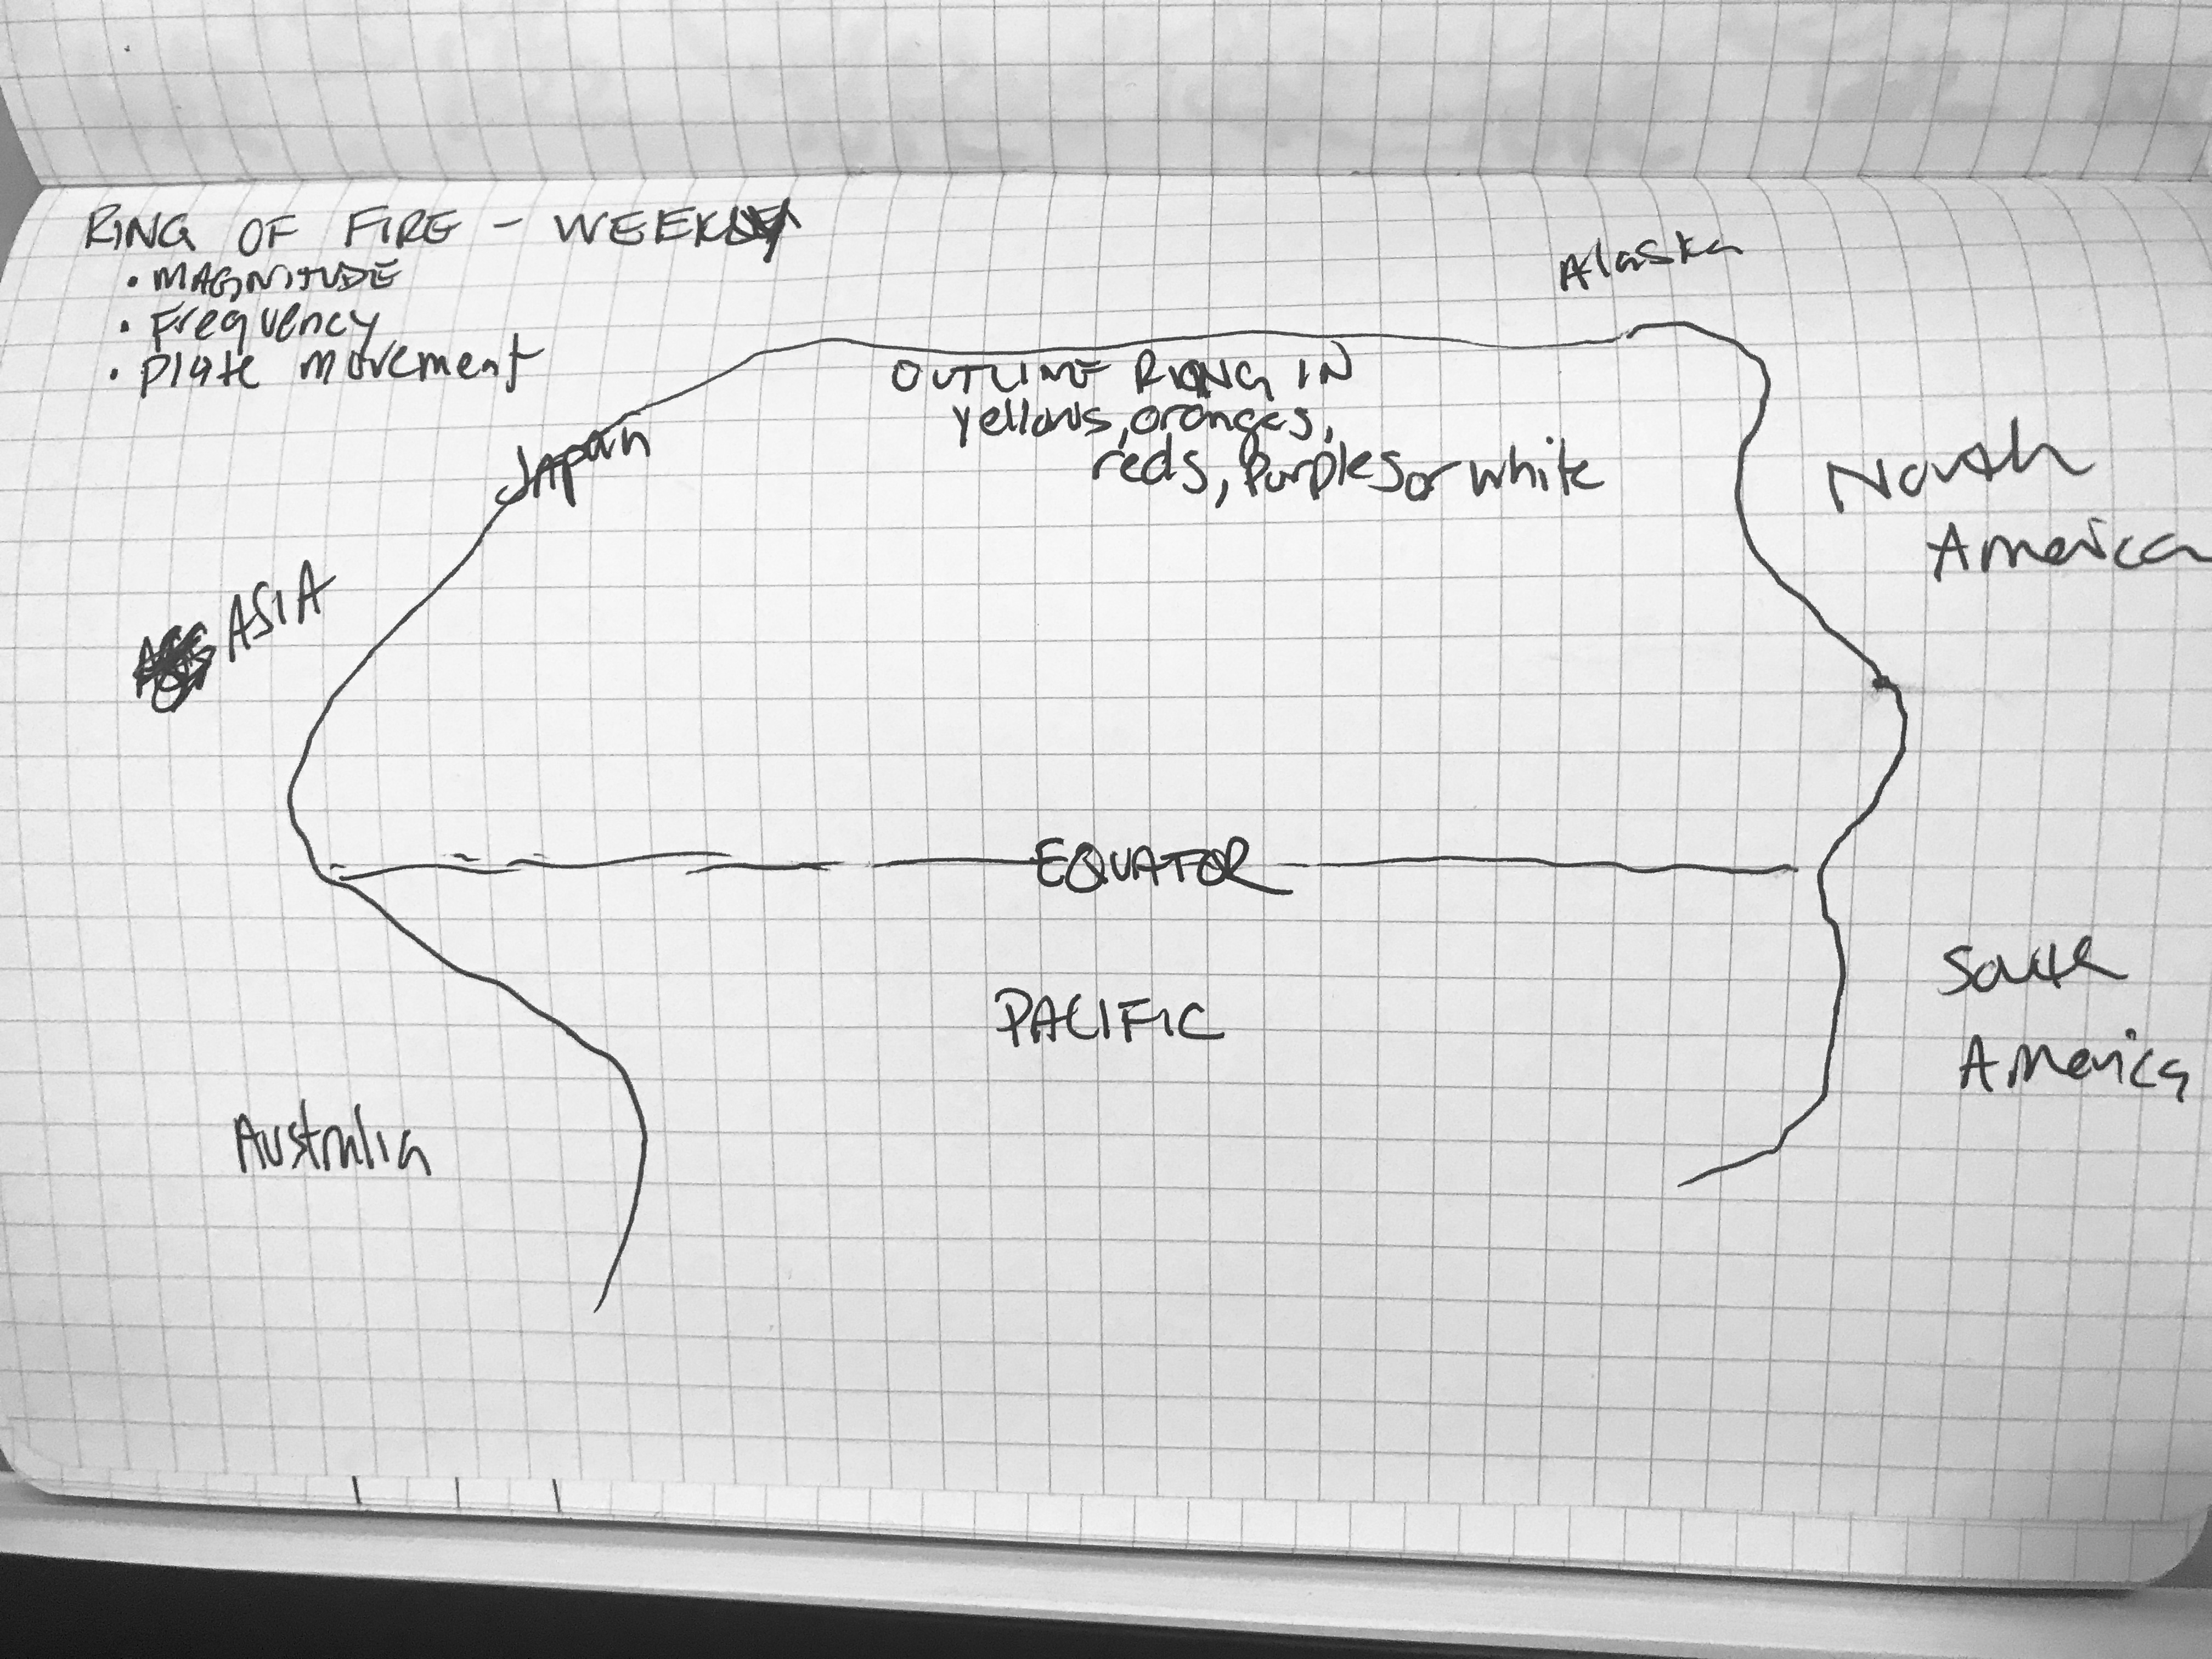 RING OF FIRE - WEEKLY
• MAGNITUDE
• Frequency
• Plate movement
Alaska
OUTLINE RING IN
yellows, oranges,
reds, Purples or white
Japan
North
America
ASIA
EQUATOR
PACIFIC
South
America
Australia